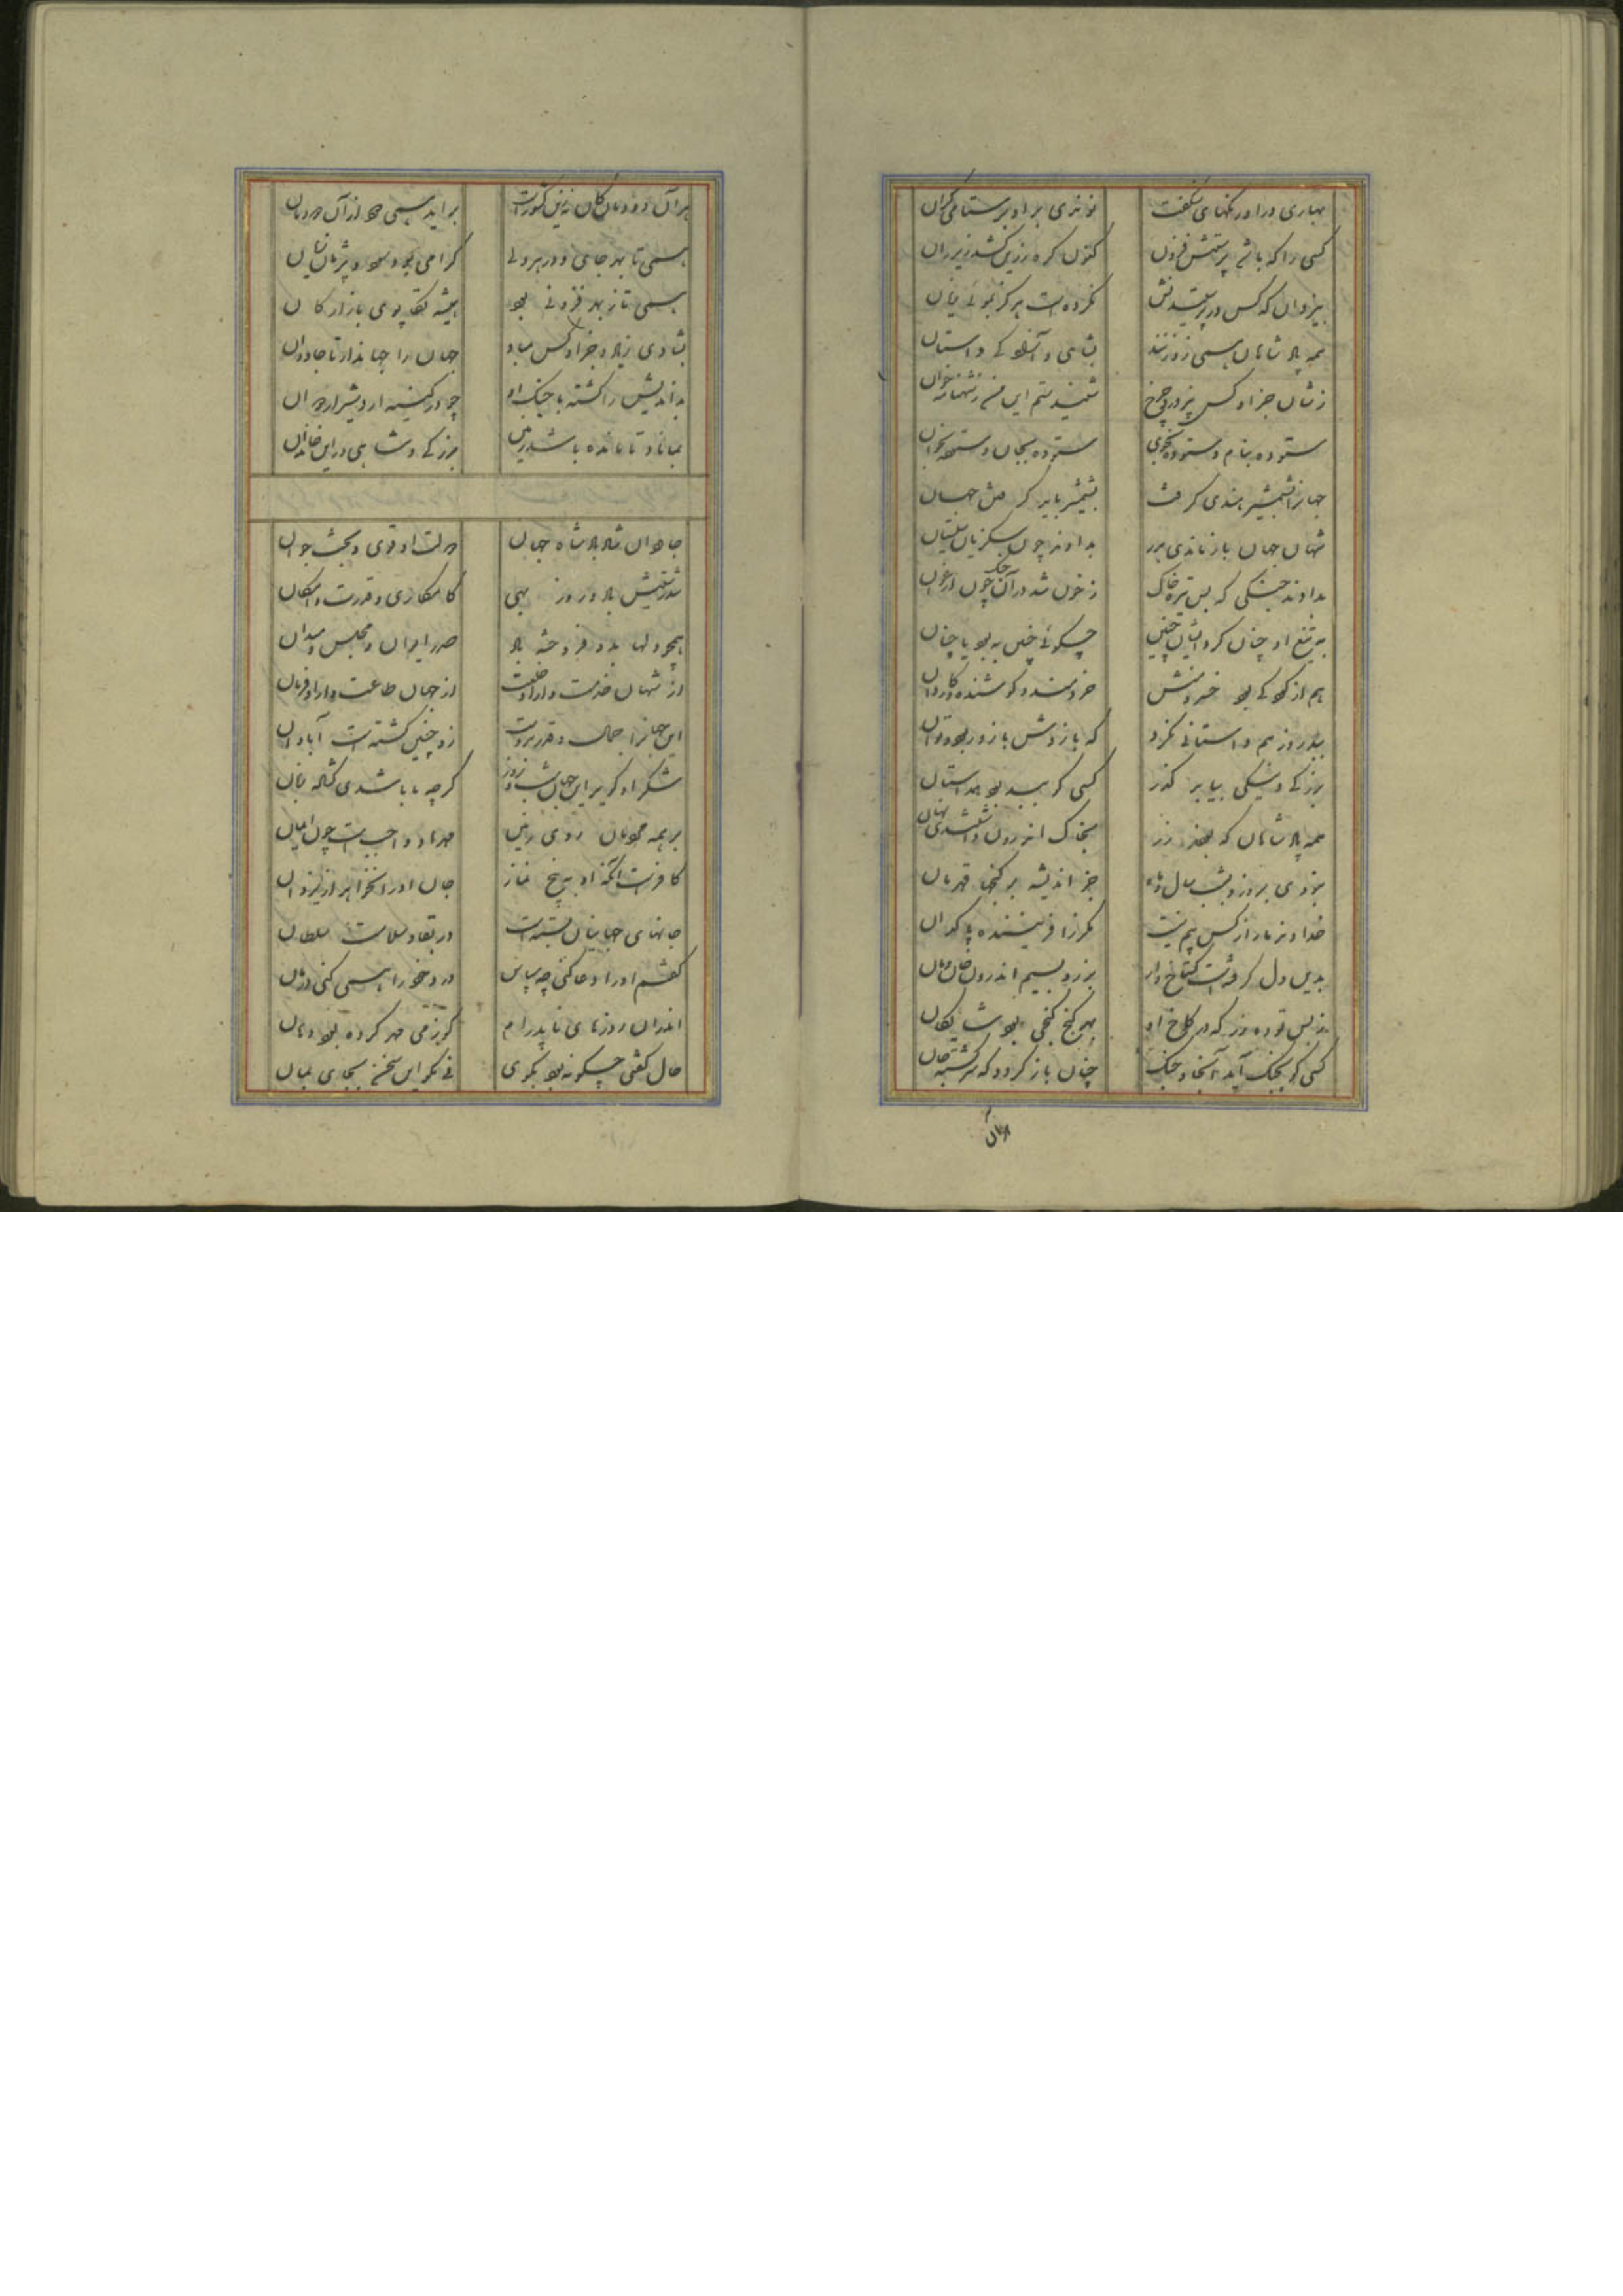 بهاری درا و رنگهای شگفت نو نری بر او بر ستا می کران
کسی را که باشی پرستش فزون کنون کره زرین کشد زیر ران
بیزدان که کس در پرستیدنش نکرده است هرگز نمونی زیان
همه پادشاهان همی زو زنند بشاهی و آزادگی داستان
ز شاهان جز او کس نپرورد چرخ شنیدستم این من ز شهنامه خوان
ستوده بنام و ستوده بخوی ستوده بجان و ستوده بخوان
جهانرا بشمشیر هندی گرفت بشمشیر باید گرفتن جهان
شهان جهان باز ماندی بدر بدادند چون سکزیان سیستان
بدادند جنگی که بس تیره خاک ز خون شد در آن جنگ چون ارغوان
به تیغ او چنان کرد و ایشان چنین چگوئی چنین به بود یا چنان
هم از کودکی بود خسرو منش خردمند و کوشنده و کاردان
بپدر روز هم داستانی نکرد که بازوش با زور بود و توان
بزرگی و نیکی بیابد گذر کسی کو ببد بود همداستان
همه پادشاهان که بودند زر بخاک اندرون داشتندی نهان
نبودی بروز و بشب سال و ماه جز اندیشه بر گنجها قهرمان
خداوند ما را ز کس بیم نیست مگر از آفریننده پاک دان
بدین دل گرفته است گستاخ وار بزر و بسیم اندرون خان و مان
ز بس توده زر که در کاخ او بهر کنج گنجی بود شایگان
کسی کو بجنگ آید آنجا و جنگ چنان باز گردد که سرگشته جان
هر آن دودمان کان زین کشور است براید همی دود از آن دودمان
همی تا بهر جای در هر دلی گرامی بود همچو جان
همی تا ز بهر فزونی بود همیشه تکاپوی بازارگان
بشادی زیاد و جز او کس مباد جهان را جهاندار تا جاودان
بداندیش را کشته با جنگ او چو در کینه اردشیر اردوان
بماناد تا مانده باشد زمین بزرگی و شاهی در این خاندان
جاودان شاد باد شاه جهان دولت او قوی و بخت جوان
تندرستیش باد و روز بهی کامکاری و قدرت و امکان
همچو دلها بدو فروخته باد صدر ایوان و مجلس و میدان
از شهان خدمت و از او خلعت از جهان طاعت و از او فرمان
این جهانرا جمال و قدر بدوست زو چنین گشته است آبادان
شکر او گیر این جهان شب و روز گرچه ما باشدی گشاده زبان
بر همه مردمان روی زمین مهر او واجب است چون ایمان
کافر است آنکه او به پنج نماز جان او را نخواهد از یزدان
جانهای جهانیان بسته است در بقا و سلامت سلطان
گفتم او را دعا کنی چه سپاس درد خود را همی کنی درمان
اندران روزهای ناپدرام کز می مهر کرده بود دهان
حال گیتی چگونه بود بگوی نی نگو این سخن بجای بمان